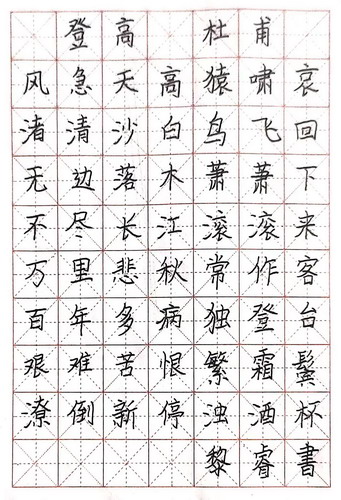 登高 杜甫
风急天高猿啸哀
渚清沙白鸟飞回
无边落木萧萧下
不尽长江滚滚来
万里悲秋常作客
百年多病独登台
艰难苦恨繁霜鬓
潦倒新停浊酒杯
黎睿書